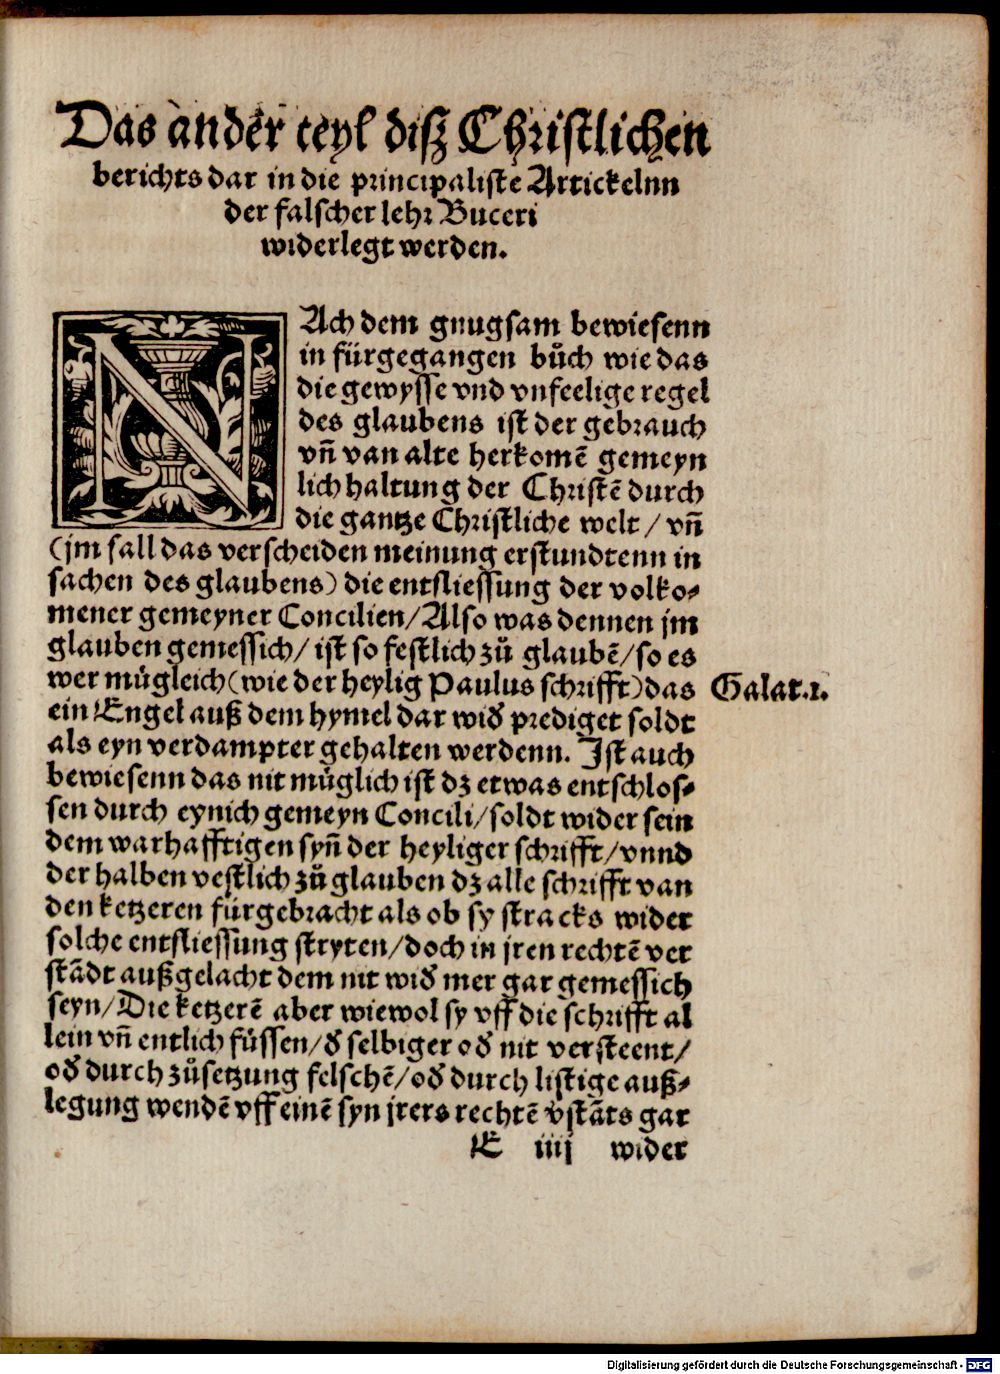 Das ander teyl diß Christlichen
berichts dar in die principaliste Artickelnn
der falscher lehr Buceri
widerlegt werden.
NAch dem gnugsam bewiesenn
in fürgegangen bůch wie das
die gewysse vnd vnfeelige regel
des glaubens ist der gebrauch
vñ van alte herkomẽ gemeyn
lich haltung der Christẽ durch
die gantze Christliche welt / vñ
(jm fall das verscheiden meinung erstundtenn in
sachen des glaubens) die entsliessung der volko⸗
mener gemeyner Concilien/Also was dennen jm
glauben gemessich/ ist so festlich zů glaubẽ/so es
wer můgleich(wie der heylig Paulus schrifft)das
Galat.1.
ein Engel auß dem hymel dar wid᷑ prediget soldt
als eyn verdampter gehalten werdenn. Ist auch
bewiesenn das nit můglich ist dz etwas entschlos⸗
sen durch eynich gemeyn Concili/soldt wider sein
dem warhafftigen syñ der heyliger schrifft/vnnd
der halben vestlich zů glauben dz alle schrifft van
den ketzeren fürgebracht als ob sy stracks wider
solche entsliessung stryten/doch in jren rechtẽ ver
stãdt außgelacht dem nit wid᷑ mer gar gemessich
seyn/Die ketzerẽ aber wiewol sy vff die schrifft al
lein vñ entlich füssen/d᷑ selbiger od᷑ nit versteent/
od᷑ durch zůsetzung felschẽ/od᷑ durch listige auß⸗
legung wendẽ vff einẽ syn jrers rechtẽ v̄stãts gar
E iiij wider
Digitalisierung gefördert durch die Deutsche Forschungsgemeinschaft - DFG